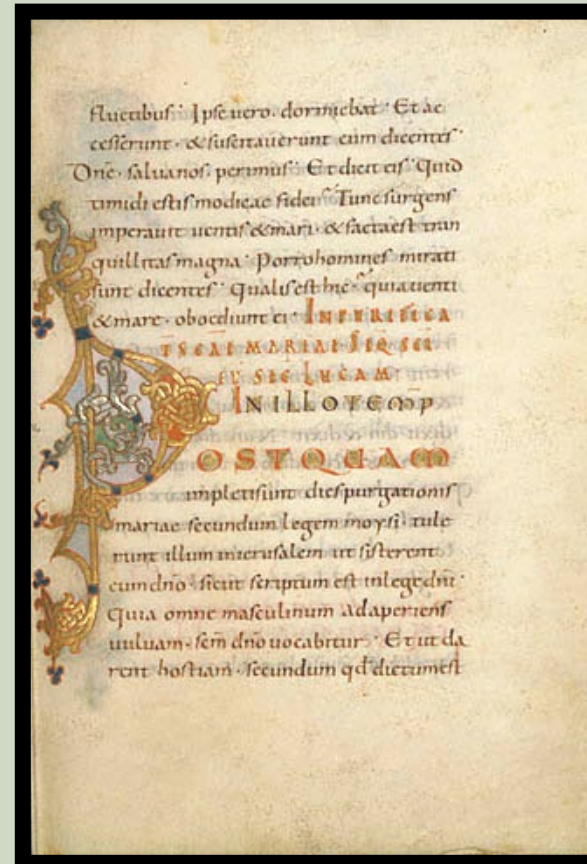 fluctibus· Ipse vero· dormiebat· Et ac
cesserunt· & suscitauerunt eum dicentes·
Dne· salua nos· perimus· Et dicit eis· Quid
timidi estis modicae fidei· Tunc surgens
imperauit uentis & mari· & facta est tran
quillitas magna· Porro homines mirati
sunt dicentes· Qualis est hic· quia uenti
& mare· obediunt ei· IN PURIFICA
T SCAE MARIAE SEQ SCI
EU SEC LUCAM
IN ILLO TEMP
POSTQUAM
impleti sunt dies purgationis
mariae secundum legem moysi· tule
runt illum in ierusalem ut sisterent
eum dno· sicut scriptum est in lege dni·
Quia omne masculinum adaperiens
uuluam· scm dno uocabitur· Et ut da
rent hostiam· secundum qd dictum est